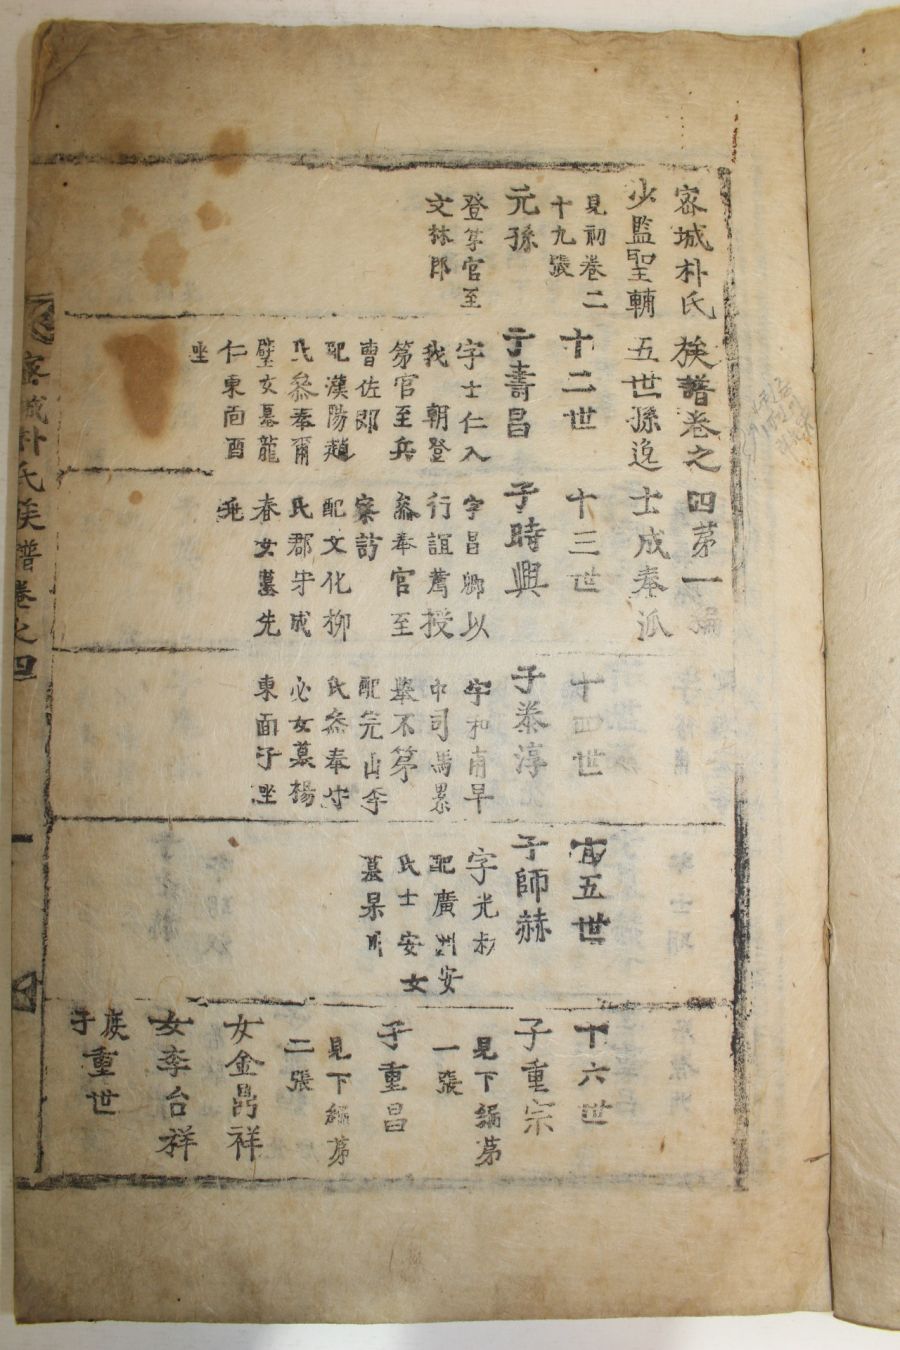 密城朴氏族譜卷之四第一編
少監聖輔五世孫逸士成奉派
見初卷二
十九張
元孫
登第官至
文林郎
十二世
子壽昌
字士仁入
我 朝登
第官至兵
曹佐郎
配漢陽趙
氏參奉爾
璧女墓龍
仁東面酉
坐
十三世
子時興
字昌卿以
行誼薦授
參奉官至
察訪
配文化柳
氏郡守成
春女墓先
兆
十四世
子泰淳
字和甫早
中司馬累
舉不第
配完山李
氏參奉
必女墓楊
東面子坐
十五世
子師赫
字光叔
配廣州安
氏士安女
墓果川
十六世
子重宗
見下編第
一張
子重昌
見下編第
二張
女金昺祥
女李台祥
庶
子重世
密城朴氏族譜卷之四
一